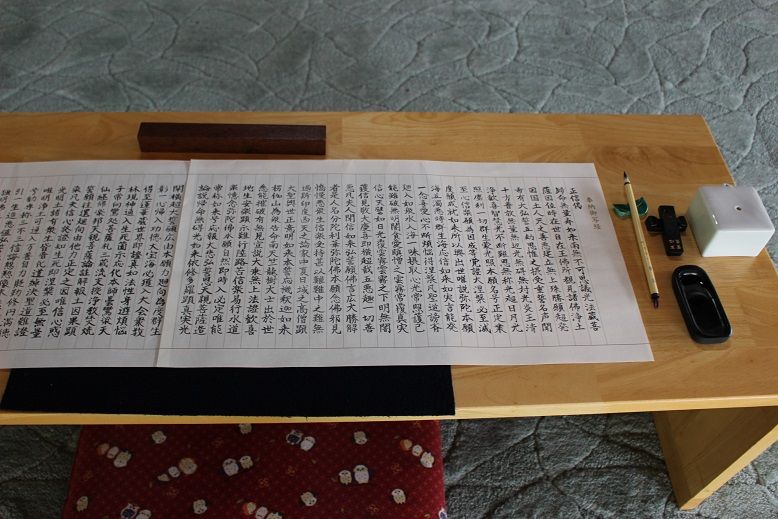 奉納御写経
正信偈
帰命無量寿如来南無不可思議光法蔵菩
薩因位時在世自在王佛所覩見諸佛浄土
因国土人天之善悪建立無上殊勝願超発
希有大弘誓五劫思惟之摂受重誓名声聞
十方普放無量無辺光無碍無対光炎王清
浄歓喜智慧光不断難思無称光超日月光
照塵刹一切群生蒙光照本願名号正定業
至心信楽願為因成等覚證大涅槃必至滅
度願成就如来所以興出世唯説弥陀本願
海五濁悪時群生海応信如来如実言能発
一念喜愛心不断煩悩得涅槃凡聖逆謗斉
廻入如衆水入海一味摂取心光常照護已
能雖破無明闇貪愛瞋憎之雲霧常覆真実
信心天譬如日光覆雲霧雲霧之下明無闇
獲信見敬大慶喜即横超截五悪趣一切善
悪凡夫人聞信如来弘誓願佛言広大勝解
者是人名分陀利華弥陀佛本願念佛邪見
憍慢悪衆生信楽受持甚以難難中之難無
過斯印度西天之論家中夏日域之高僧顕
大聖興世正意明如来本誓応機釈迦如来
楞伽山為衆告命南天竺龍樹大士出於世
悉能摧破有無見宣説大乗無上法證歓喜
地生安楽顕示難行陸路苦信楽易行水道
楽憶念弥陀佛本願自然即時入必定唯能
常称如来号応報大悲弘誓恩天親菩薩造
論説帰命無碍光如来依修多羅顕真実光
闡横超大誓願広由本願力廻向為度群生
彰一心帰入功徳大宝海必獲入大会衆数
得至蓮華蔵世界即證真如法性身遊煩悩
林現神通入生死薗示応化本師曇鸞梁天
子常向鸞処菩薩礼三蔵流支授浄教焚焼
仙経帰楽邦天親菩薩論註解報土因果顕
誓願往還廻向由他力正定之因唯信心惑
染凡夫信心発證知生死即涅槃必至無量
光明土諸有衆生皆普化道綽決聖道難證
唯明浄土可通入万善自力貶勤修円満徳